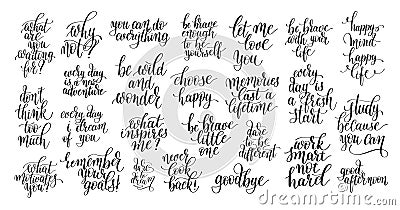 what
are
you
waiting
for?
why
not?
you can do
everything
be brave
enough
to be
yourself
let me
love
you
be brave
with your
life
happy
mind
happy
life
every day
is a new
adventure
be wild
and
wonder
choose
happy
memories
last a
lifetime
every
day is
a fresh
start
don't
think
too
much
every day
i dream
of you
what
inspires
me?
be brave
little
one
dare
to be
different
study
because
you can
what
motivates
you?
remember
your
goals!
never
look
back!
goodbye
work
smart
not
hard
good
afternoon